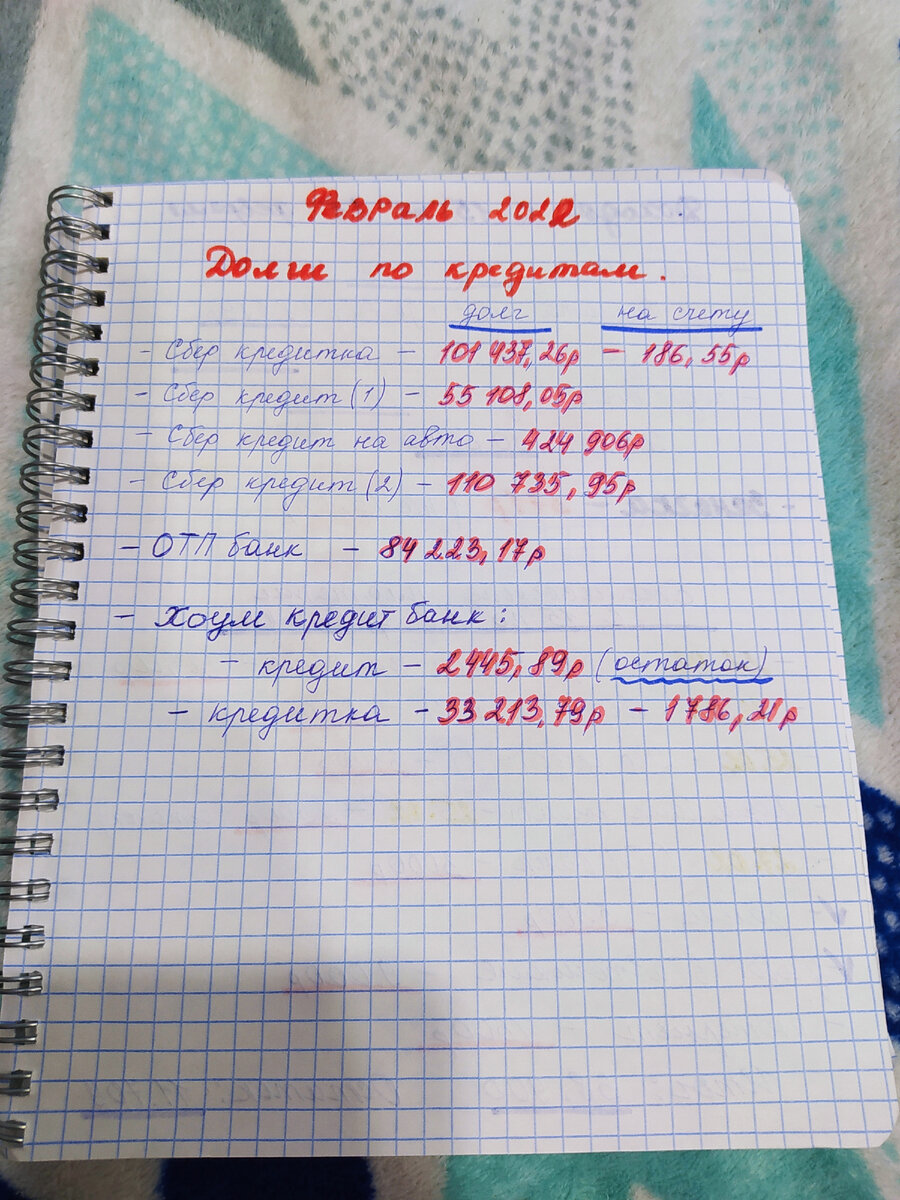 Февраль 2022
Долги по кредитам.
долг на счету
- Сбер кредитка - 101 437,26р - 186,55р
- Сбер кредит (1) - 55 108,05р
- Сбер кредит на авто - 424 906р
- Сбер кредит (2) - 110 735,95р
- ОТП банк - 84 223,17р
- Хоум кредит банк:
- кредит - 2445,89р (остаток)
- кредитка - 33 213,79р - 1786,21р